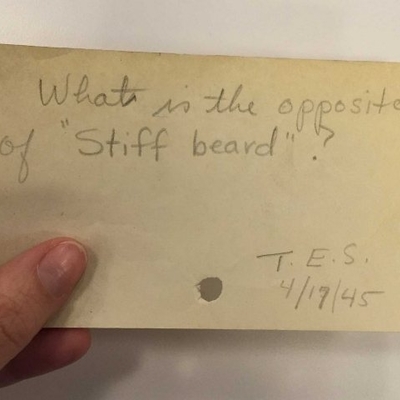 What is the opposite
of "Stiff beard"?
T. E. S.
4/19/45